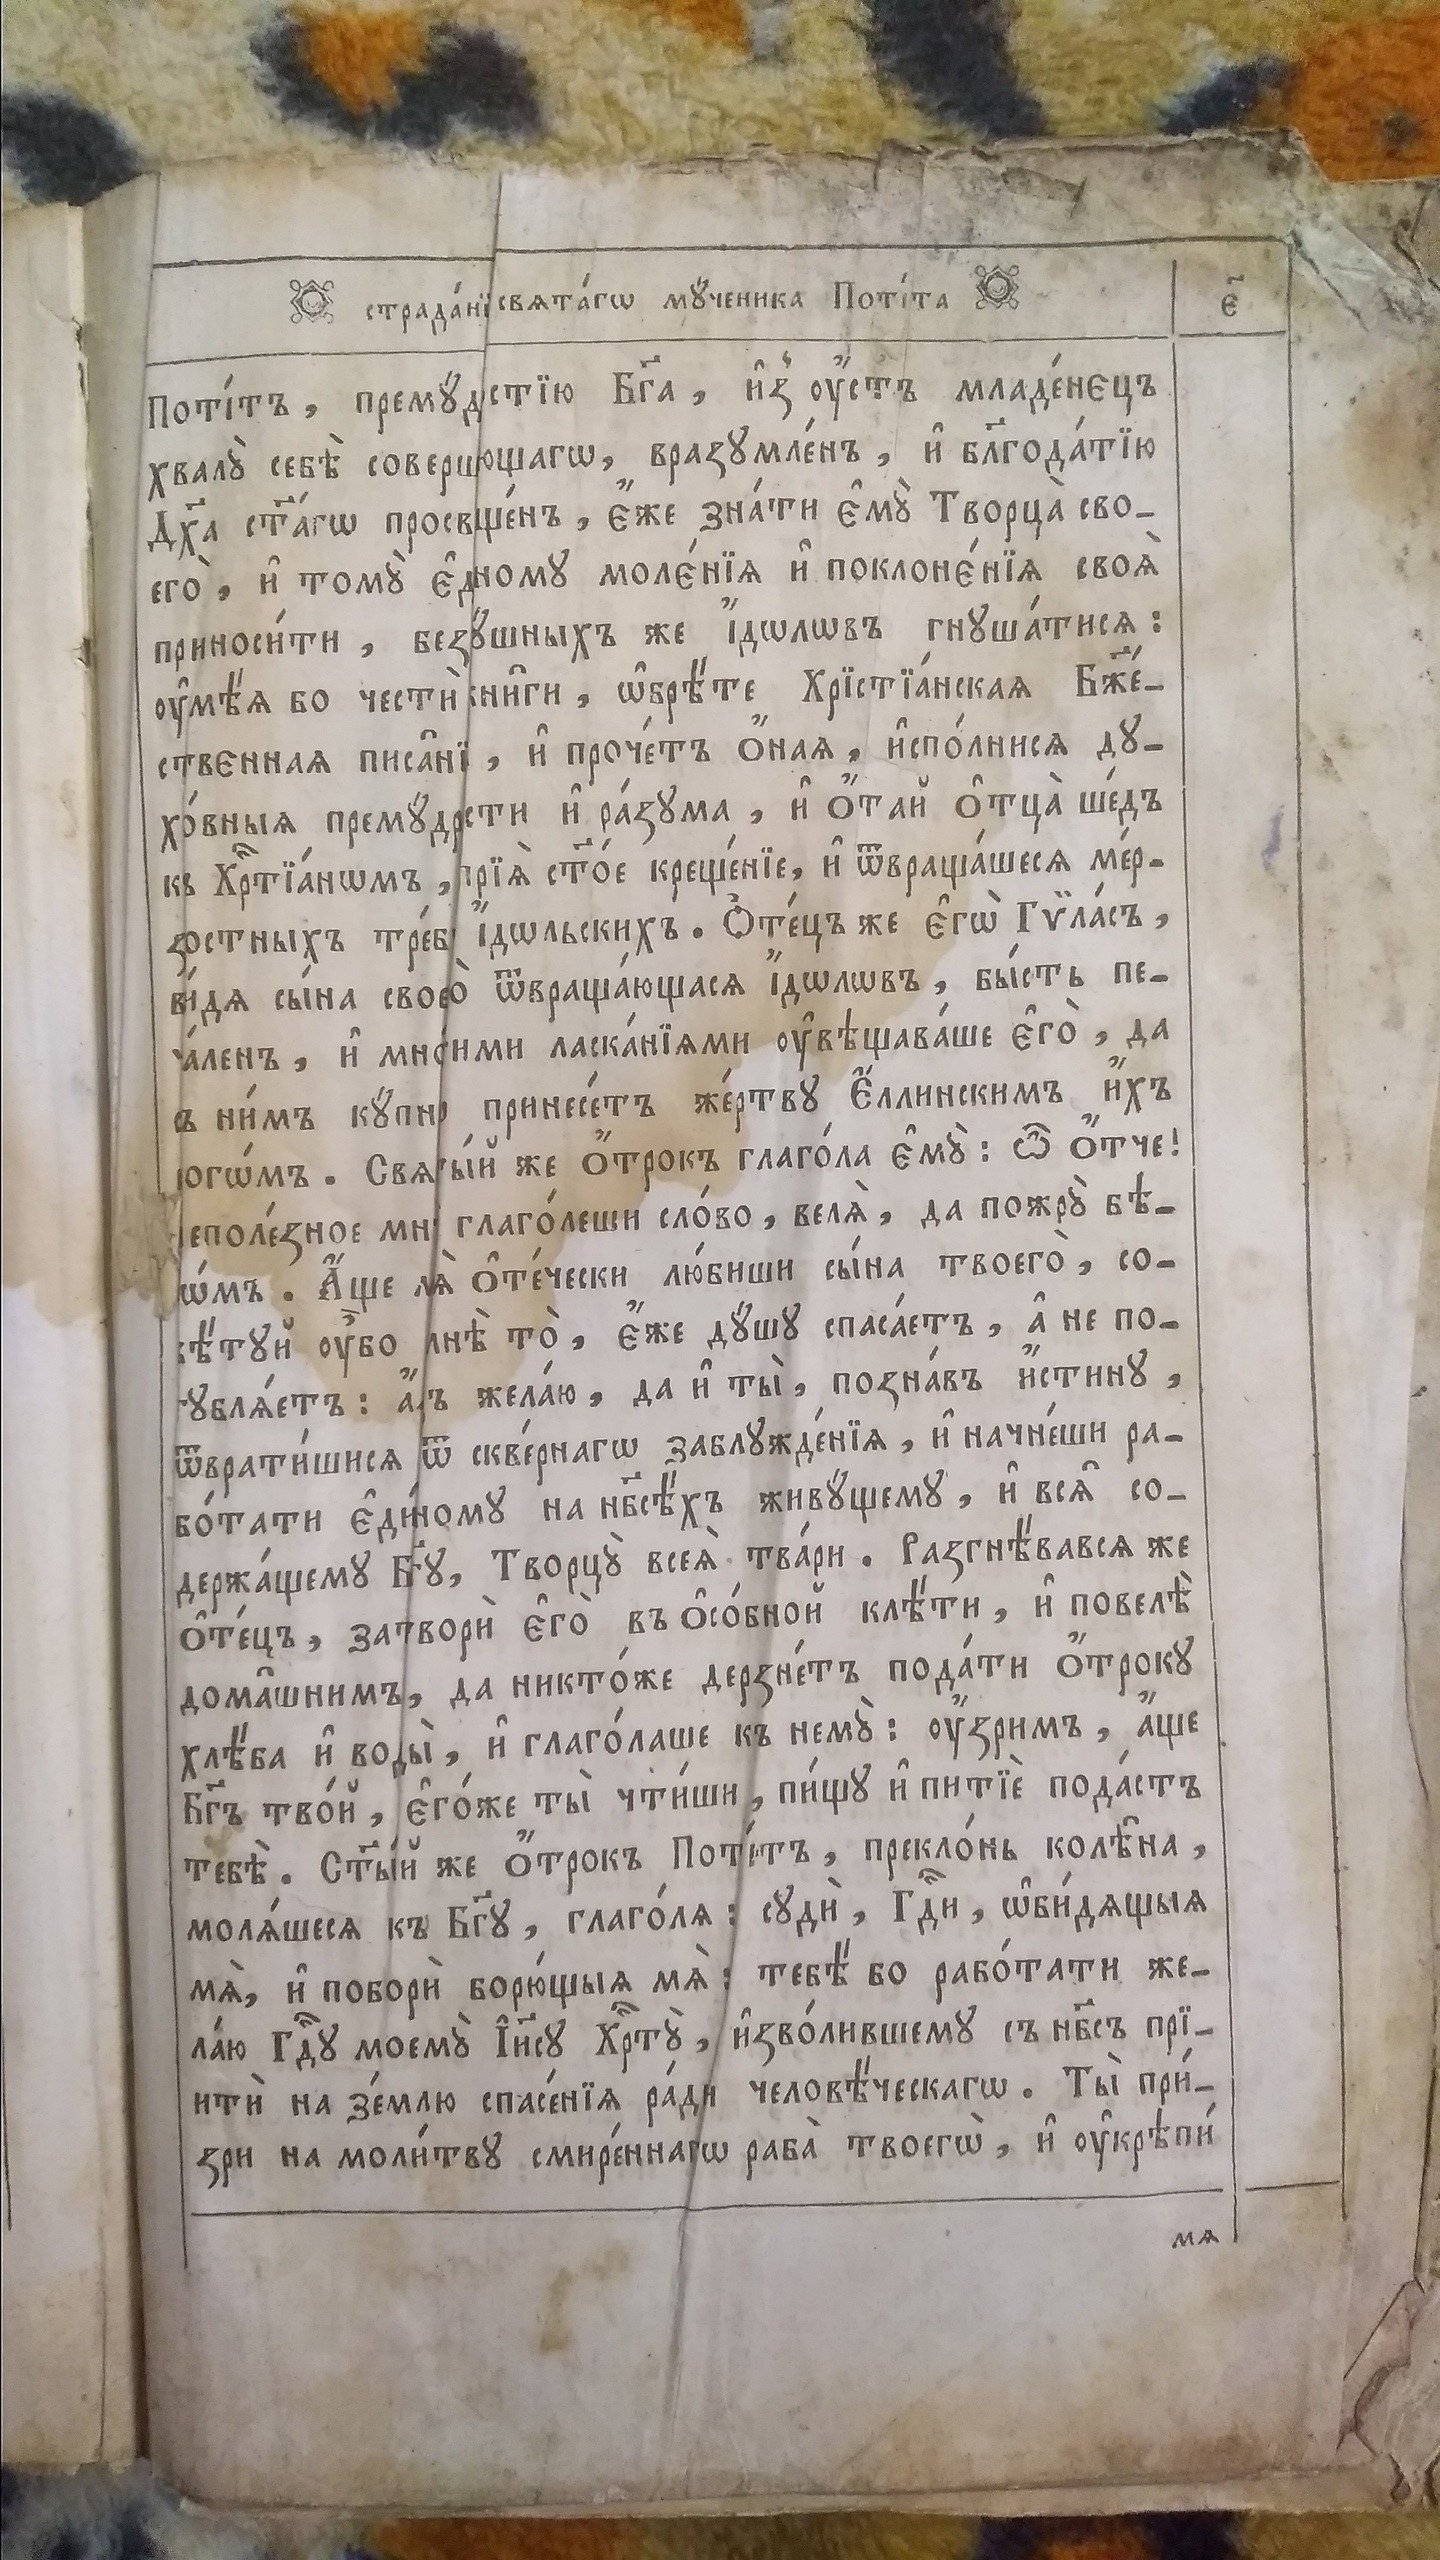 страда́нї свята́гѡ мꙋ́ченика Поті́та є҃
Поті́тъ, премꙋ́д стїю Бг҃а, и҆з̾ оу҆́стъ младе́нєцъ
хвалꙋ̀ себѣ̀ совер ющагѡ, вразꙋмле́нъ, и҆ бл҃года́тїю
Дх҃а ст҃а́гѡ просв ще́нъ, є҆́же зна́ти є҆мꙋ̀ Творца̀ сво_
его̀, и҆ томꙋ̀ є҆д номꙋ моле́нїѧ и҆ поклоне́нїѧ своѧ̀
приноси́ти, без шныхъ же і҆́дѡлѡвъ гнꙋша́тисѧ:
оу҆мѣ́ѧ бо честѝ кни̑ги, ѡ҆брѣ́те Хрїстїа́нскаѧ Бж҃е́_
ственнаѧ писа̑нї , и҆ проче́тъ ѻ҆́наѧ, и҆спо́лнисѧ дꙋ_
хо́вныѧ премꙋ́др сти и҆ ра́зꙋма, и҆ ѻ҆́тай ѻ҆тца̀ ше́дъ
къ Хрⷭ҇тїа́нѡмъ, прїѧ̀ ст҃о́е креще́нїе, и҆ ѿвраща́шесѧ ме́р_
зостныхъ тре́б і҆́дѡльскихъ. Ѻ҆те́цъ же є҆гѡ̀ Гѷла́съ,
ви́дѧ сы́на свое о̀ ѿвраща́ющасѧ і҆́дѡлѡвъ, бы́сть пе_
ча́ленъ, и҆ мно́ ими ласка́нїѧми оу҆вѣщава́ше є҆го̀, да
съ ни́мъ кꙋ́пнѡ принесе́тъ же́ртвꙋ Є҆́ллинскимъ и҆́хъ
огѡ́мъ. Свѧты́й же ѻ҆́трокъ глаго́ла є҆мꙋ̀: Ѽ ѻ҆́тче!
неполе́зное мн глаго́леши сло́во, велѧ̀, да пожрꙋ̀ бѣ_
ѡ́мъ. А҆́ще мѧ̀ ѻ҆те́чески лю́биши сы́на твоего̀, со_
вѣ́тꙋй оу҆́бо мнѣ̀ то̀, є҆́же дꙋ́шꙋ спаса́етъ, а҆ не по_
гꙋблѧ́етъ: а҆́ ъ жела́ю, да и҆ ты̀, позна́въ и҆́стинꙋ,
ѿврати́шисѧ ѿ скве́рнагѡ заблꙋжде́нїѧ, и҆ начне́ши ра_
бо́тати є҆ди́номꙋ на нб҃сѣ́хъ живꙋ́щемꙋ, и҆ всѧ̑ со_
держа́щемꙋ Бг҃ꙋ, Творцꙋ̀ всеѧ̀ тва́ри. Разгнѣ́вавсѧ же
ѻ҆те́цъ, затворѝ є҆го̀ въ ѻ҆со́бной клѣ́ти, и҆ повелѣ̀
дома̑шнимъ, да никто́же дерзне́тъ пода́ти ѻ҆́трокꙋ
хлѣ́ба и҆ воды̀, и҆ глаго́лаше къ немꙋ̀: оу҆́зримъ, а҆́ще
Бг҃ъ тво́й, є҆го́же ты̀ чти́ши, пи́щꙋ и҆ питїѐ пода́стъ
тебѣ̀. Ст҃ы́й же ѻ҆́трокъ Поті́тъ, прекло́нь колѣ̑на,
молѧ́шесѧ къ Бг҃ꙋ, глаго́лѧ: сꙋдѝ, Гдⷭ҇и, ѡ҆би́дѧщыѧ
мѧ̀, и҆ поборѝ борю́щыѧ мѧ̀: тебѣ́ бо рабо́тати же_
ла́ю Гдⷭ҇ꙋ моемꙋ̀ І҆и҃сꙋ Хрⷭ҇тꙋ̀, и҆зво́лившемꙋ съ нб҃съ прї_
итѝ на зе́млю спасе́нїѧ ра́ди человѣ́ческагѡ. Ты̀ при́_
зри на моли́твꙋ смире́ннагѡ раба̀ твоегѡ̀, и҆ оу҆крѣпи́
мѧ